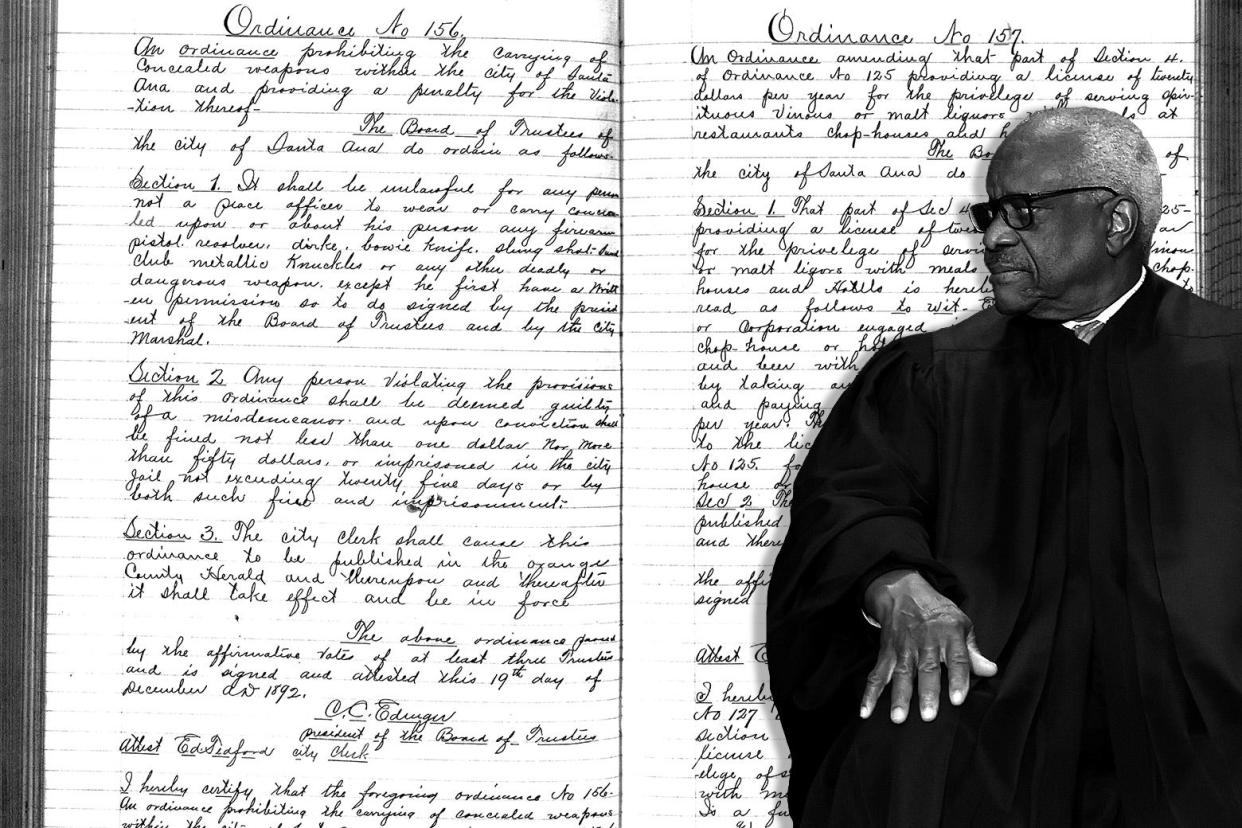 Ordinance No 156.
An ordinance prohibiting the carrying of
Concealed weapons within the city of Santa
Ana and providing a penalty for the Viola-
-tion thereof-
The Board of Trustees of
the city of Santa Ana do ordain as follows-
Section 1. It shall be unlawful for any person
not a peace officer to wear or carry concea
led upon or about his person any firearm
pistol. revolver. dirke. bowie knife. slung shot. Sand
Club metallic Knuckles or any other deadly or
dangerous weapon. except he first have a Writt
-en permission so to do signed by the presid
ent of the Board of Trustees and by the city
Marshal.
Section 2 Any person Violating the provisions
of this ordinance shall be deemed guilty
of a misdemeanor and upon conviction shall
be fined not less than one dollar Nor more
than fifty dollars, or imprisoned in the city
Jail not exceeding twenty five days or by
both such fine and imprisonment.
Section 3. The city clerk shall cause this
ordinance to be published in the orange
County Herald and thereupon and thereafter
it shall take effect and be in force
The above ordinance passed
by the affirmative votes of at least three Trustees
and is signed and attested this 19th day of
December AD 1892.
C.C. Edinger
president of the Board of Trustees
Attest Ed Tedford city clerk
I hereby certify that the foregoing ordinance No 156-
An ordinance prohibiting the carrying of concealed weapons
within the city of
Ordinance No 157.
An Ordinance amending that part of Section 4.
of Ordinance No 125 providing a license of twenty
dollars per year for the privelege of serving Spir-
ituous Vinous or malt liquors at
restaurants chop-houses and
The of
the city of Santa Ana do
Section 1. That part of Sec 4 25-
providing a license of
for the privelege of
or malt ligors with meals chop-
houses and Hotells is
read as follows to wit-
or corporation engaged
chop-house or
and beer with
by taking
and paying
per year.
to the
No 125.
house or
Sec 2
published
and
the
signed
Attest
I
No 127
Section
license
elege of
with
Is a